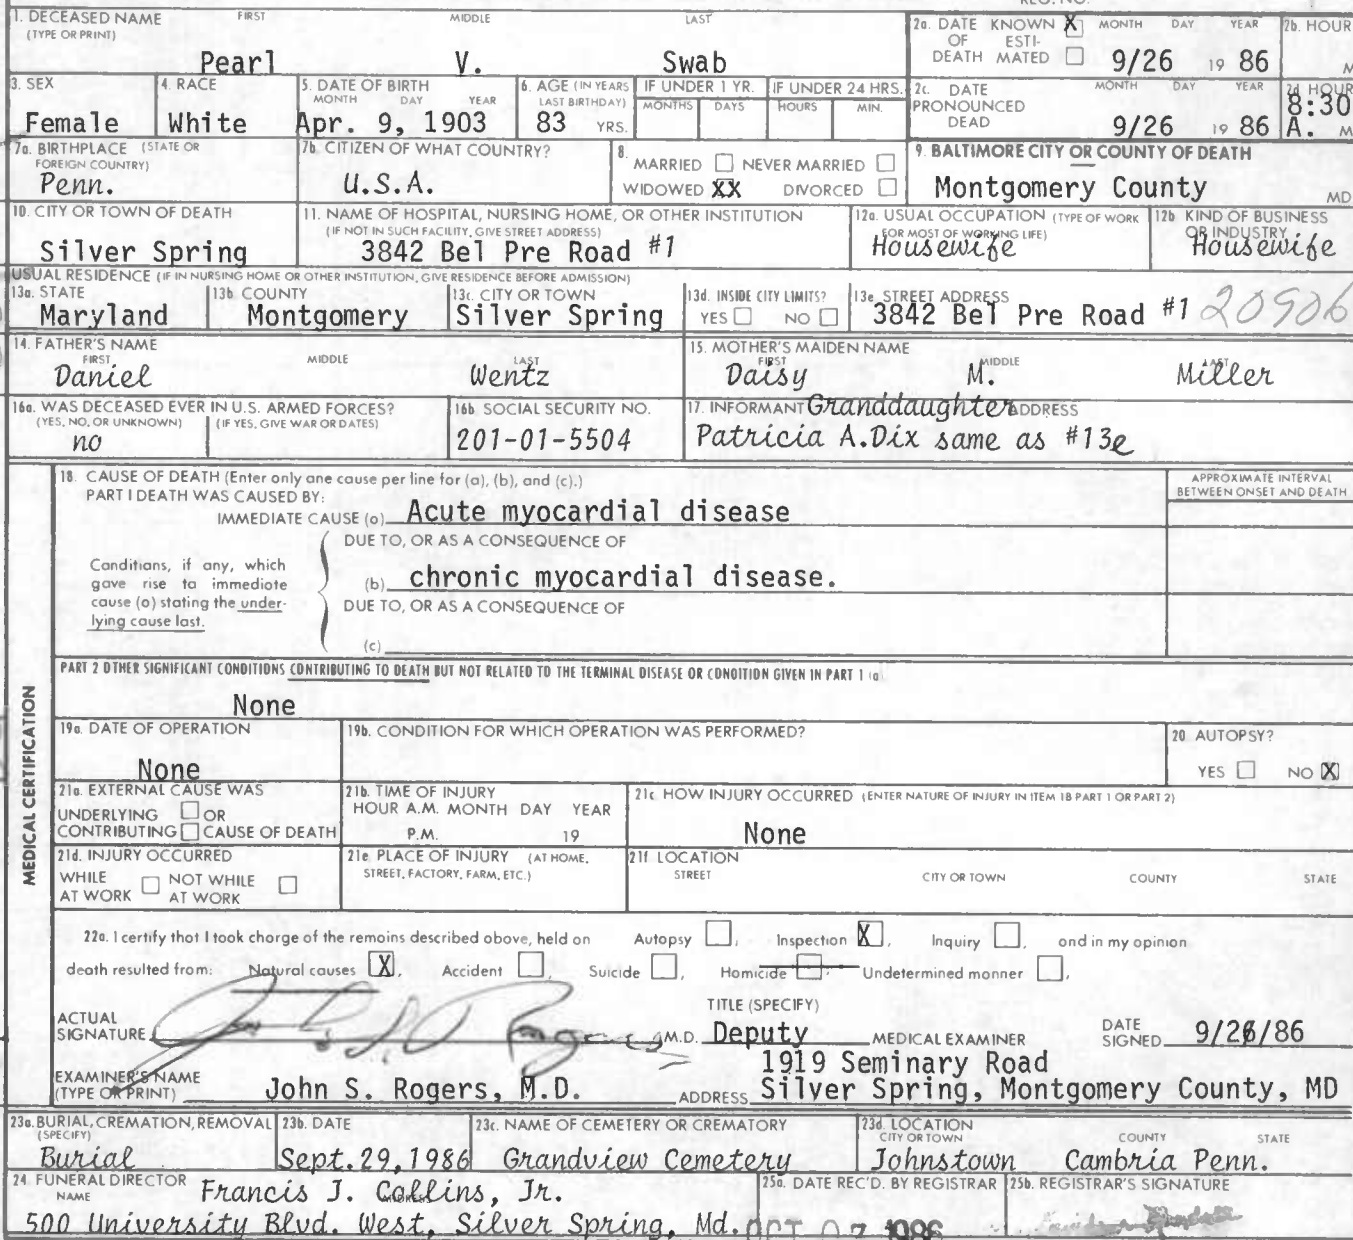 1. DECEASED NAME FIRST MIDDLE LAST
(TYPE OR PRINT)
Pearl V. Swab
2a. DATE KNOWN X MONTH DAY YEAR
OF ESTI-
DEATH MATED 9/26 19 86
2b. HOUR
M
3. SEX
Female
4. RACE
White
5. DATE OF BIRTH
MONTH DAY YEAR
Apr. 9, 1903
6. AGE (IN YEARS
LAST BIRTHDAY)
83 YRS.
IF UNDER 1 YR.
MONTHS DAYS
IF UNDER 24 HRS.
HOURS MIN.
2c. DATE MONTH DAY YEAR
PRONOUNCED
DEAD 9/26 19 86
2d HOUR
8:30
A. M
7a. BIRTHPLACE (STATE OR
FOREIGN COUNTRY)
Penn.
7b. CITIZEN OF WHAT COUNTRY?
U.S.A.
8.
MARRIED NEVER MARRIED
WIDOWED XX DIVORCED
9. BALTIMORE CITY OR COUNTY OF DEATH
Montgomery County MD
10. CITY OR TOWN OF DEATH
Silver Spring
11. NAME OF HOSPITAL, NURSING HOME, OR OTHER INSTITUTION
(IF NOT IN SUCH FACILITY, GIVE STREET ADDRESS)
3842 Bel Pre Road #1
12a. USUAL OCCUPATION (TYPE OF WORK
FOR MOST OF WORKING LIFE)
Housewife
12b KIND OF BUSINESS
OR INDUSTRY
Housewife
USUAL RESIDENCE (IF IN NURSING HOME OR OTHER INSTITUTION, GIVE RESIDENCE BEFORE ADMISSION)
13a. STATE
Maryland
13b COUNTY
Montgomery
13c. CITY OR TOWN
Silver Spring
13d. INSIDE CITY LIMITS?
YES NO
13e. STREET ADDRESS
3842 Bel Pre Road #1 20906
14. FATHER'S NAME
FIRST MIDDLE LAST
Daniel Wentz
15. MOTHER'S MAIDEN NAME
FIRST MIDDLE LAST
Daisy M. Miller
16a. WAS DECEASED EVER IN U.S. ARMED FORCES?
(YES, NO, OR UNKNOWN) (IF YES, GIVE WAR OR DATES)
no
16b SOCIAL SECURITY NO.
201-01-5504
17. INFORMANT Granddaughter ADDRESS
Patricia A.Dix same as #13e
MEDICAL CERTIFICATION
18. CAUSE OF DEATH (Enter only one cause per line for (a), (b), and (c).)
PART I DEATH WAS CAUSED BY:
IMMEDIATE CAUSE (a) Acute myocardial disease
APPROXIMATE INTERVAL
BETWEEN ONSET AND DEATH
DUE TO, OR AS A CONSEQUENCE OF
Conditions, if any, which
gave rise to immediate
cause (a) stating the under-
lying cause last.
(b) chronic myocardial disease.
DUE TO, OR AS A CONSEQUENCE OF
(c)
PART 2 OTHER SIGNIFICANT CONDITIONS CONTRIBUTING TO DEATH BUT NOT RELATED TO THE TERMINAL DISEASE OR CONDITION GIVEN IN PART 1 (a)
None
19a. DATE OF OPERATION
None
19b. CONDITION FOR WHICH OPERATION WAS PERFORMED?
20. AUTOPSY?
YES NO X
21a. EXTERNAL CAUSE WAS
UNDERLYING OR
CONTRIBUTING CAUSE OF DEATH
21b. TIME OF INJURY
HOUR A.M. MONTH DAY YEAR
P.M. 19
21c HOW INJURY OCCURRED (ENTER NATURE OF INJURY IN ITEM 18 PART 1 OR PART 2)
None
21d. INJURY OCCURRED
WHILE NOT WHILE
AT WORK AT WORK
21e PLACE OF INJURY (AT HOME,
STREET, FACTORY, FARM, ETC.)
21f LOCATION
STREET CITY OR TOWN COUNTY STATE
22a. I certify that I took charge of the remains described above, held on Autopsy , Inspection X , Inquiry , and in my opinion
death resulted from: Natural causes X , Accident , Suicide , Homicide , Undetermined manner ,
ACTUAL
SIGNATURE M.D.
TITLE (SPECIFY)
Deputy MEDICAL EXAMINER
DATE
SIGNED 9/26/86
EXAMINER'S NAME
(TYPE OR PRINT) John S. Rogers, M.D.
1919 Seminary Road
ADDRESS Silver Spring, Montgomery County, MD
23a. BURIAL, CREMATION, REMOVAL
(SPECIFY)
Burial
23b. DATE
Sept.29,1986
23c. NAME OF CEMETERY OR CREMATORY
Grandview Cemetery
23d. LOCATION
CITY OR TOWN COUNTY STATE
Johnstown Cambria Penn.
24. FUNERAL DIRECTOR
NAME Francis J. Collins, Jr.
ADDRESS
500 University Blvd. West, Silver Spring, Md.
25a. DATE REC'D. BY REGISTRAR
OCT 07 1986
25b. REGISTRAR'S SIGNATURE